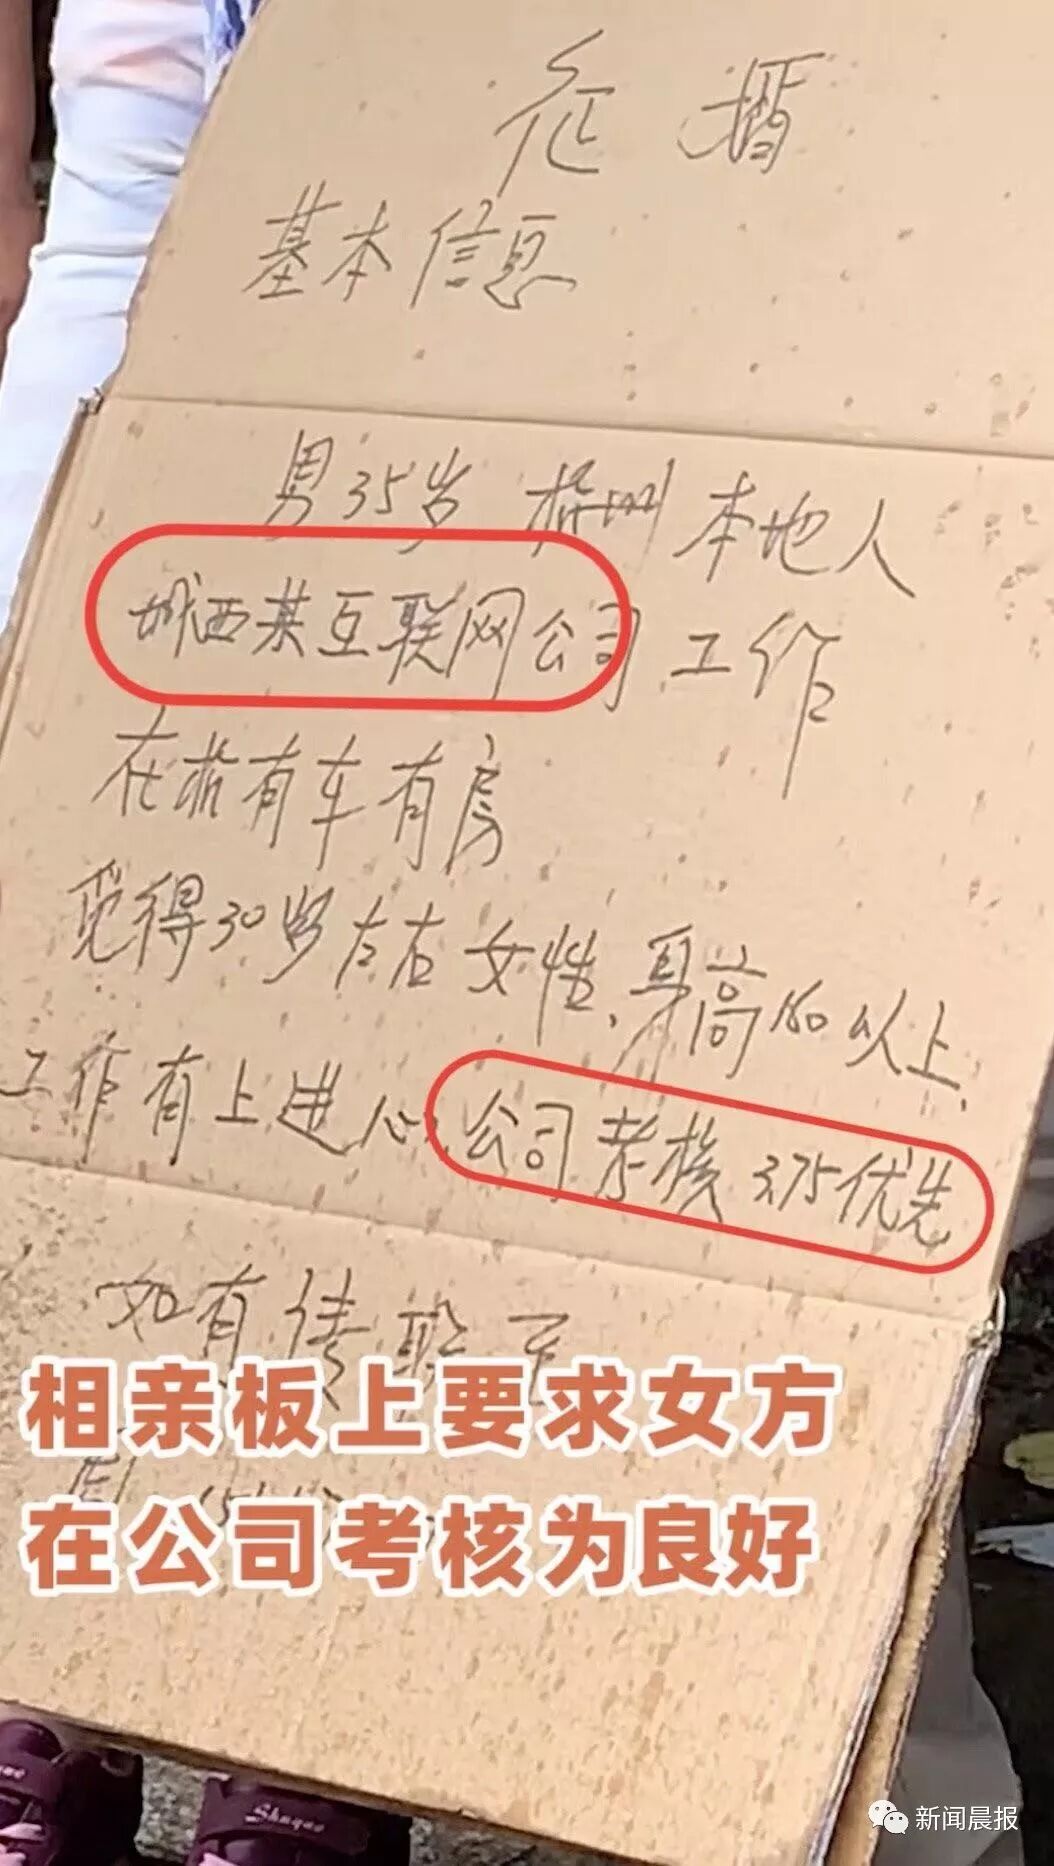 征婚
基本信息
男35岁 杭州本地人
城西某互联网公司工作
在杭有车有房
觅得30岁左右女性、身高160以上、
工作有上进心、公司考核3.75优先
如有
相亲板上要求女方
在公司考核为良好
新闻晨报